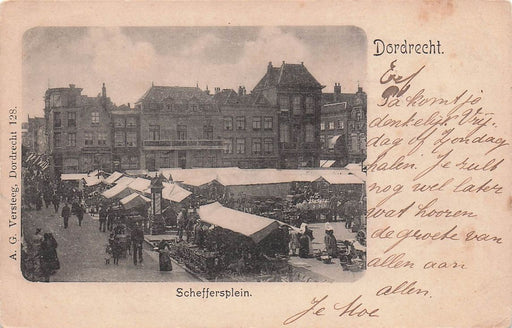 Dordrecht.
Eef
Pa komt je
denkelijk Vrij-
dag of Zondag
halen. Je zult
nog wel later
wat hooren
de groete van
allen aan
allen.
Je Moe
Scheffersplein.
A. G. Versteeg, Dordrecht 128.